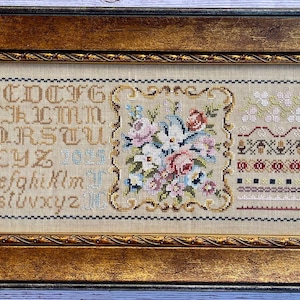 CDEFG
KLMN
RSTU
YZ
efghiklm
stuvwxyz